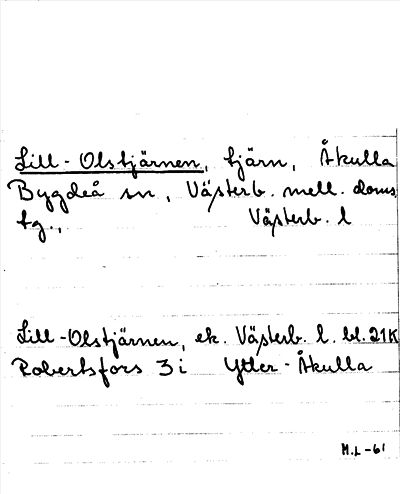 Lill-Olstjärnen, tjärn, Åkulla
Bygdeå sn, Västerb. mell. doms.
tg., Västerb. l
Lill-Olstjärnen, ek. Västerb. l. bl. 21K
Robertsfors 3 i Ytter-Åkulla
M.L -61